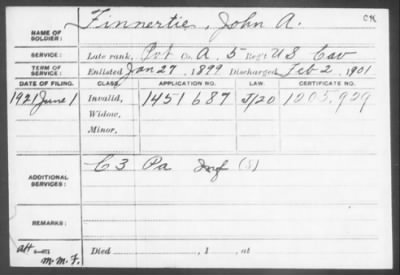 Finnertie, John A. OK
NAME OF SOLDIER:
SERVICE: Late rank, Pvt Co. A, 5 Reg't US Cav
TERM OF SERVICE: Enlisted Jan 27, 1899 Discharged Feb 2, 1901
DATE OF FILING. CLASS. APPLICATION NO. LAW. CERTIFICATE NO.
1921 June 1 Invalid, 1451687 J/20 1205.929
Widow,
Minor,
ADDITIONAL SERVICES: C 3 Pa Inf (S)
REMARKS:
Died , 1 , at
M.M.F.